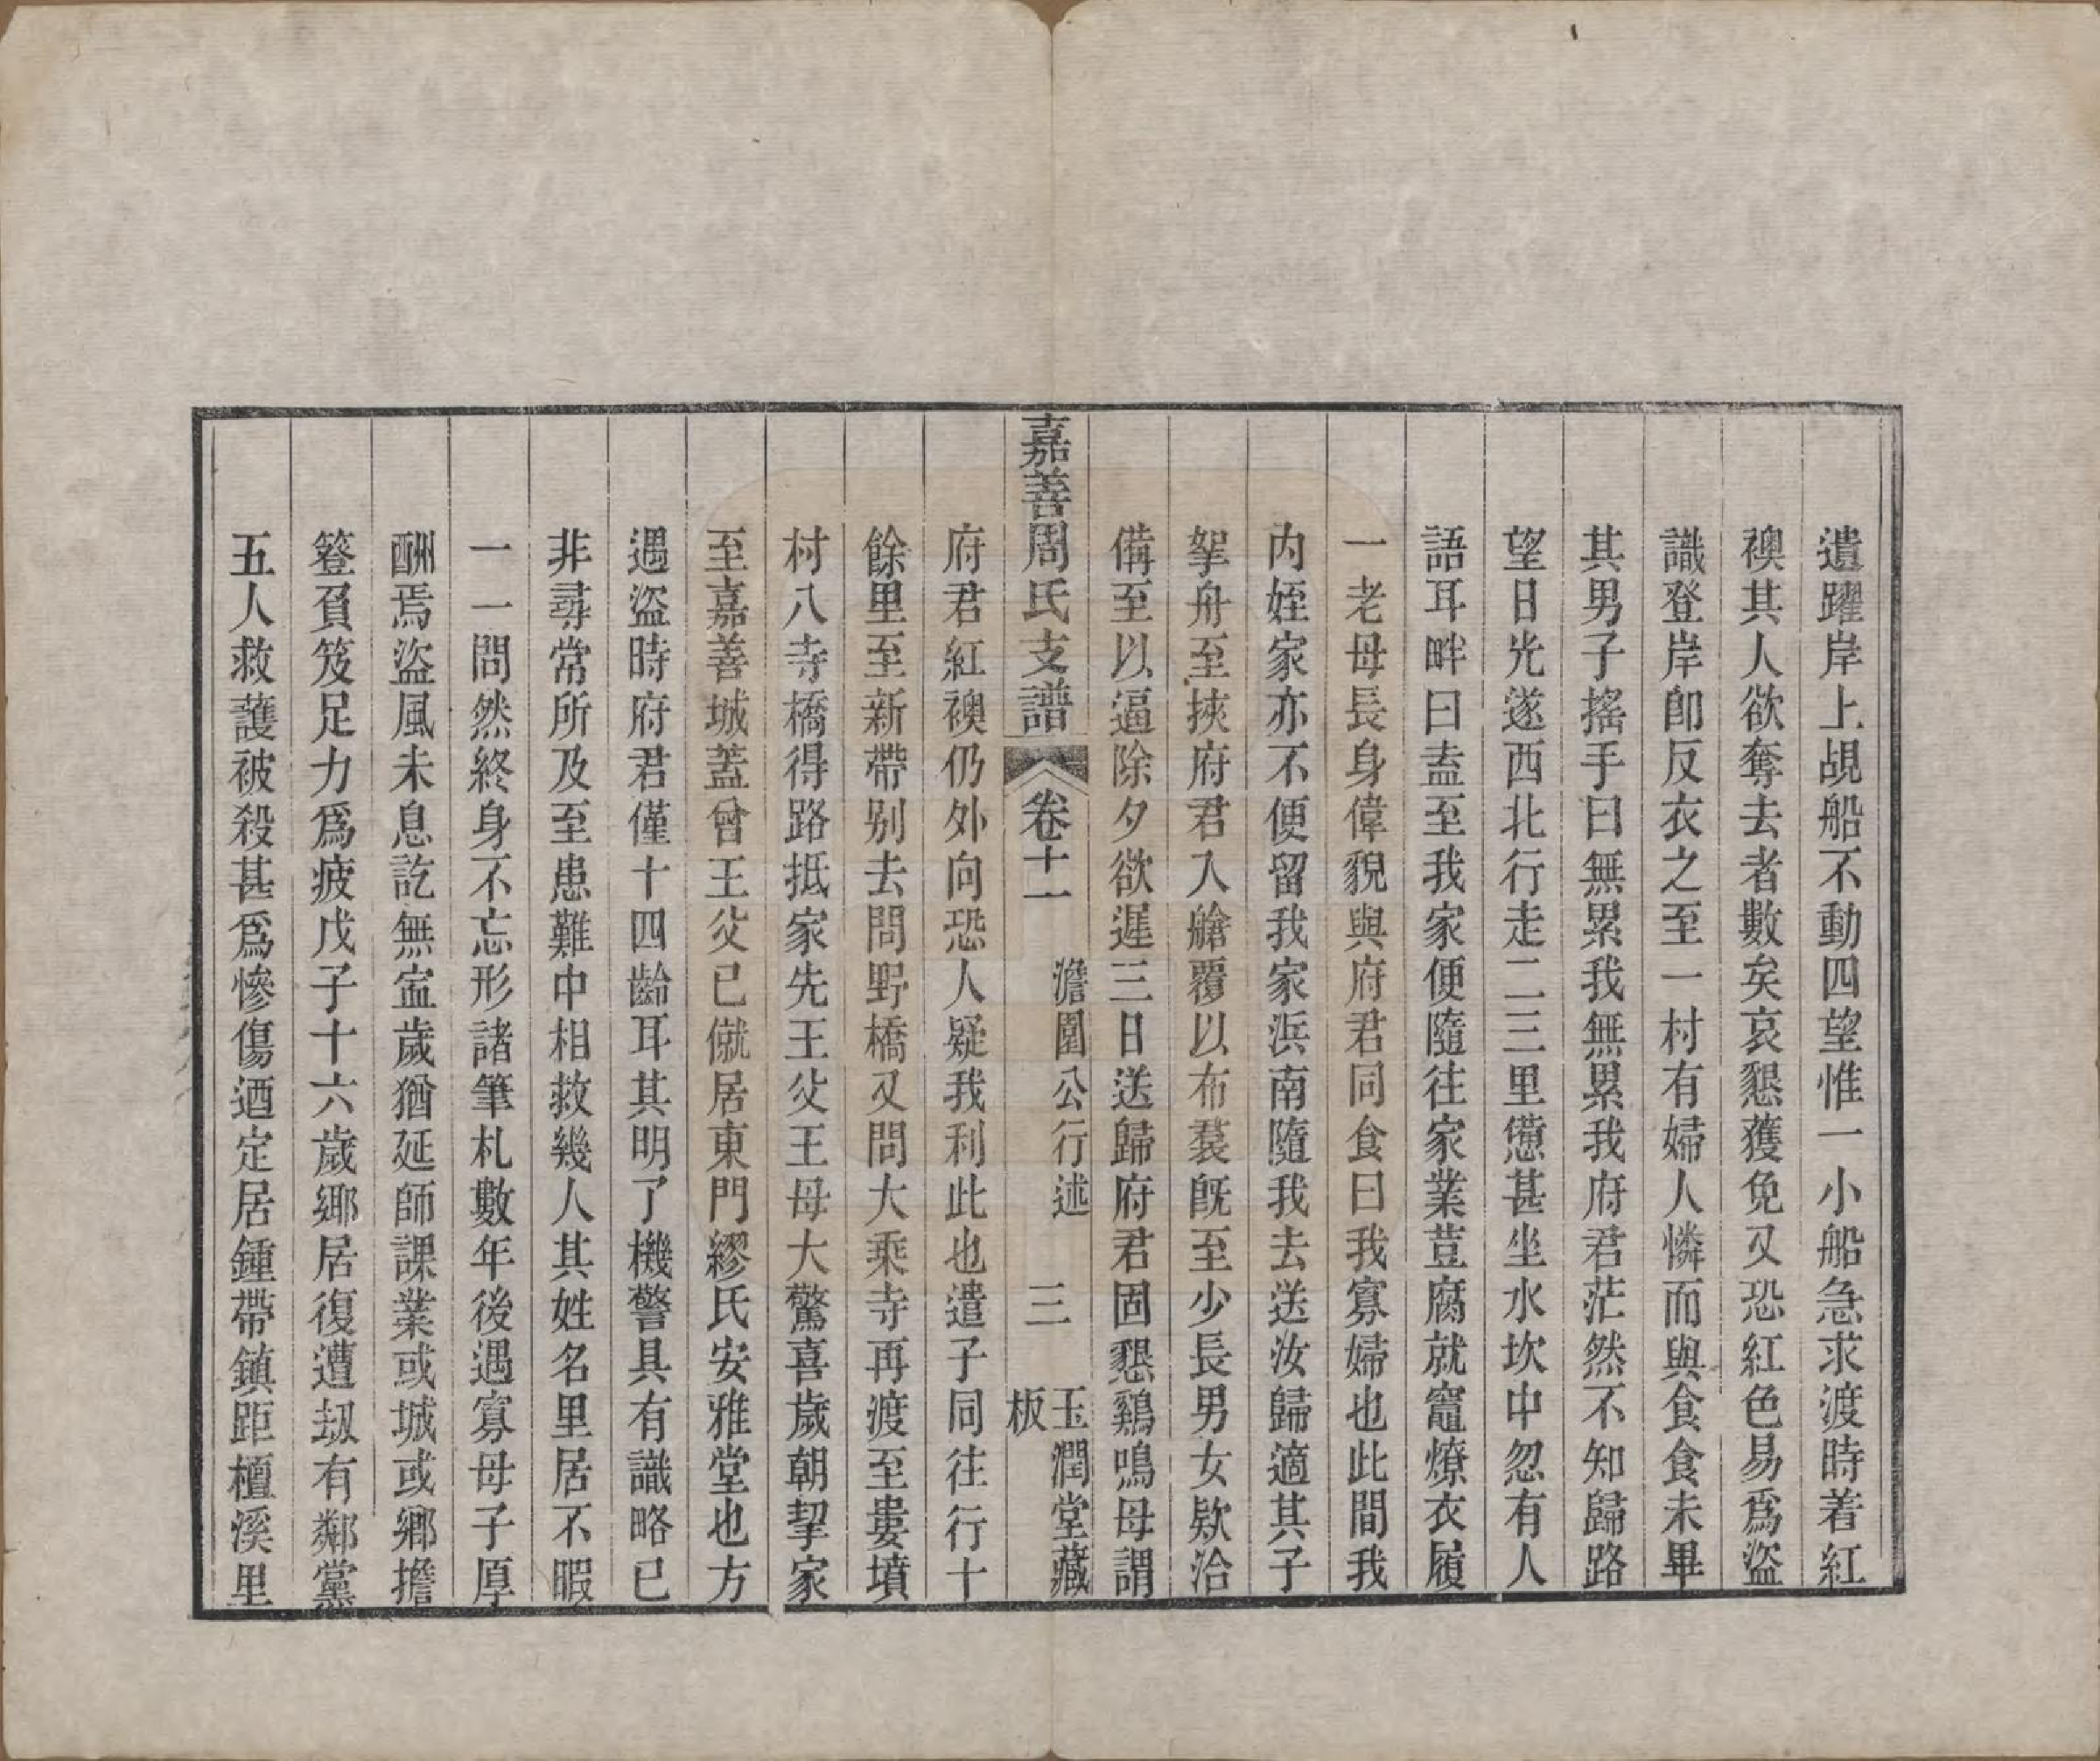 遺躍岸上覘船不動四望惟一小船急求渡時着紅
襖其人欲奪去者數矣哀懇獲免又恐紅色易爲盜
識登岸卽反衣之至一村有婦人憐而與食食未畢
其男子搖手曰無累我無累我府君茫然不知歸路
望日光遂西北行走二三里憊甚坐水坎中忽有人
語耳畔曰盍至我家便隨往家業荳腐就竈燎衣履
一老母長身偉貌與府君同食曰我寡婦也此間我
内姪家亦不便留我家浜南隨我去送汝歸適其子
挐舟至挾府君入艙覆以布裠旣至少長男女欵洽
備至以逼除夕欲遲三日送歸府君固懇鷄鳴母謂
嘉善周氏支譜
卷十一
澹園公行述
三
玉潤堂藏
板
府君紅襖仍外向恐人疑我利此也遣子同往行十
餘里至新帶别去問野橋又問大乘寺再渡至婁墳
村八寺橋得路抵家先王父王母大驚喜歲朝挈家
至嘉善城蓋曾王父已僦居東門繆氏安雅堂也方
遇盜時府君僅十四齡耳其明了機警具有識略已
非尋常所及至患難中相救幾人其姓名里居不暇
一一問然終身不忘形諸筆札數年後遇寡母子厚
酬焉盜風未息訖無寍歲猶延師課業或城或鄉擔
簦負笈足力爲疲戊子十六歲鄉居復遭刼有鄰黨
五人救護被殺甚爲慘傷迺定居鍾帶鎮距檀溪里